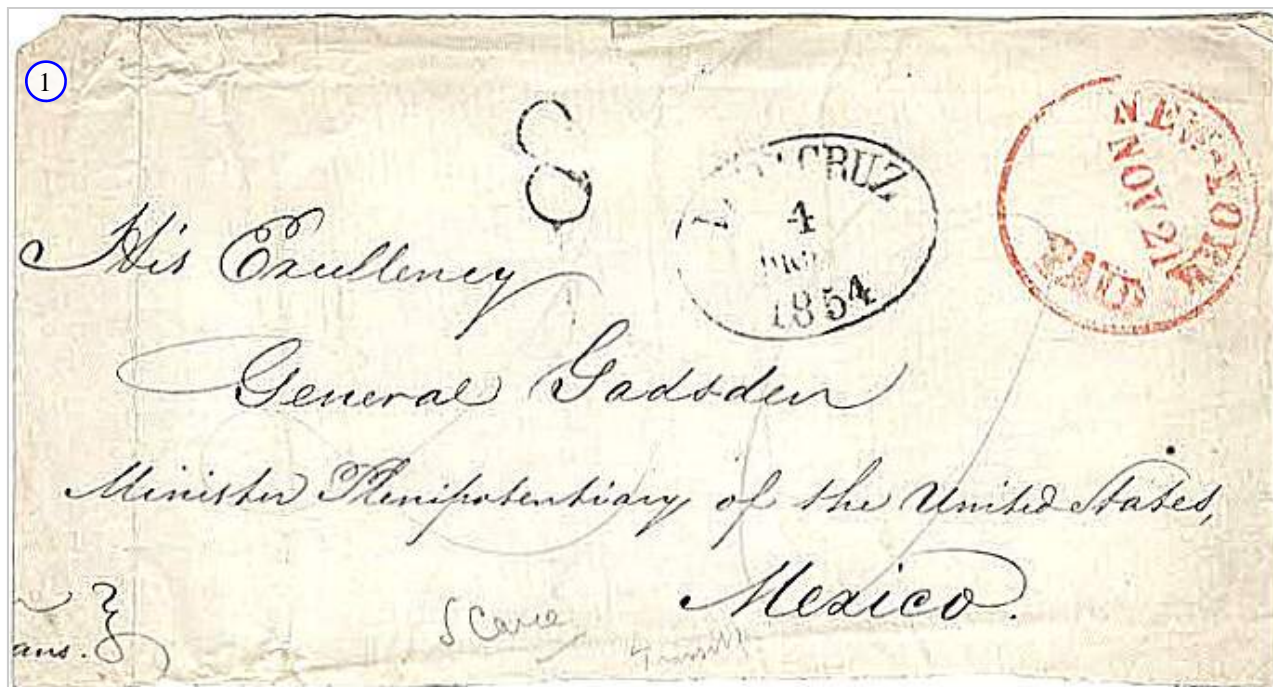 1
8
CRUZ
4
1854
NEW-YORK
NOV 21
PAID
His Excellency
General Gadsden
Minister Plenipotentiary of the United States,
Mexico.
ans.